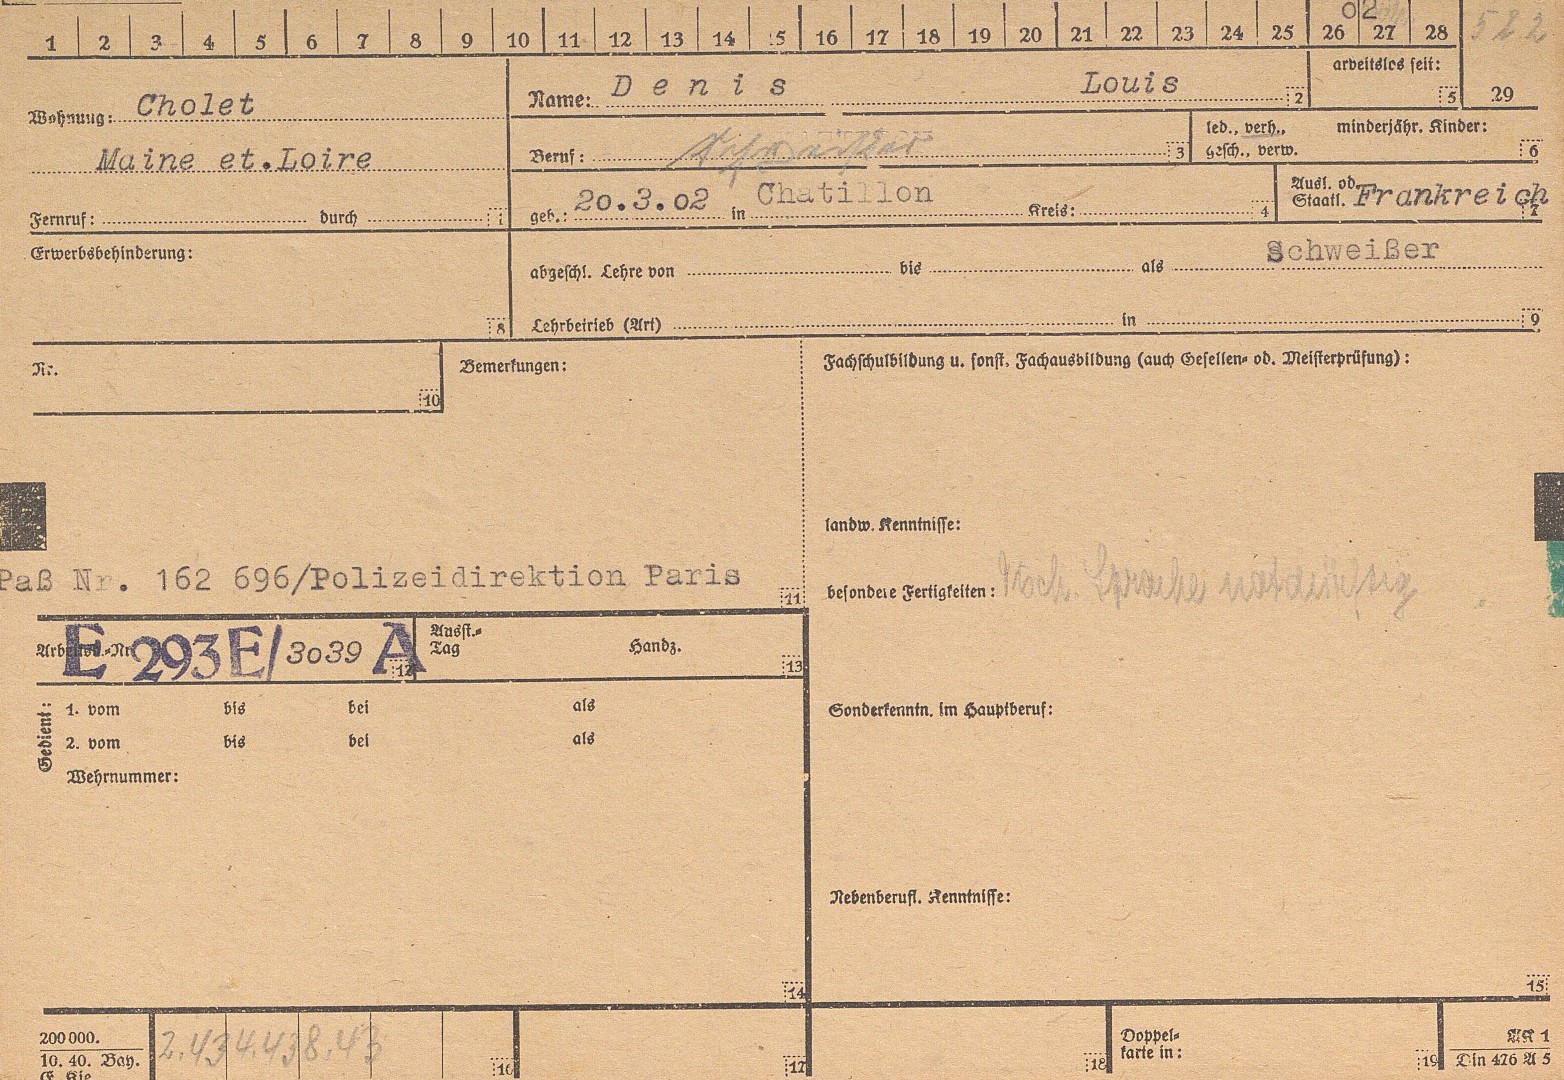 02 582
1 2 3 4 5 6 7 8 9 10 11 12 13 14 15 16 17 18 19 20 21 22 23 24 25 26 27 28
Wohnung: Cholet
Maine et.Loire
Fernruf: durch 1
Name: Denis Louis 2
arbeitslos seit: 5
29
Beruf: Schweißer 3
led., verh., minderjähr. Kinder:
gesch., verw. 6
geb.: 20.3.02 in Chatillon Kreis: 4
Ausl. od. Frankreich
Staatl. 7
Erwerbsbehinderung:
8
abgeschl. Lehre von bis als Schweißer
Lehrbetrieb (Art) in 9
Nr.
10
Bemerkungen:
Paß Nr. 162 696/Polizeidirektion Paris
11
Fachschulbildung u. sonst. Fachausbildung (auch Gesellen- od. Meisterprüfung):
landw. Kenntnisse:
besondere Fertigkeiten: Sprache notdürftig
Sonderkenntn. im Hauptberuf:
Nebenberufl. Kenntnisse:
15
Arbeitsb.-Nr. E 293 E/3039 A 12
Ausst.-
Tag Handz. 13
Gedient:
1. vom bis bei als
2. vom bis bei als
Wehrnummer:
14
200000.
10. 40. Bay.
2.43 4.43 8.43 16
17
18
Doppel-
karte in: 19
AK 1
Din 476 A 5